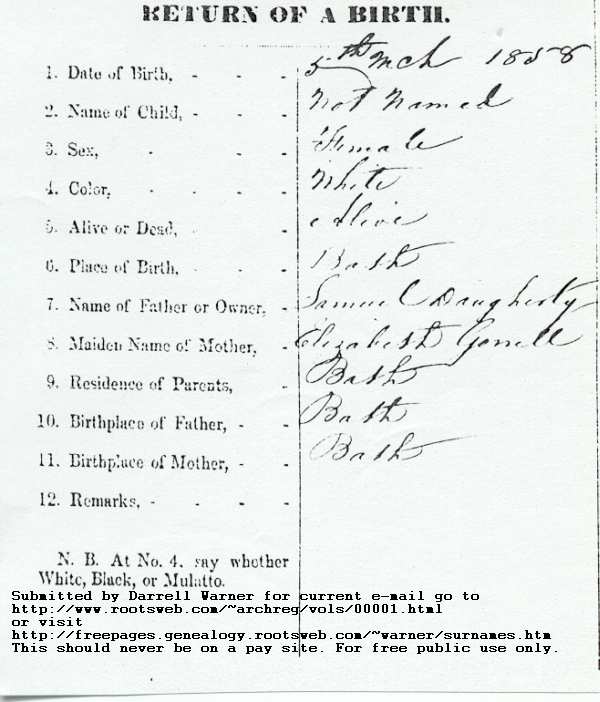 RETURN OF A BIRTH.
1. Date of Birth, - - - 5th Mch 1858
2. Name of Child, - - - Not Named
3. Sex, - - - - Female
4. Color, - - - - White
5. Alive or Dead, - - - Alive
6. Place of Birth, - - - Bath
7. Name of Father or Owner, - Samuel Daugherty
8. Maiden Name of Mother, - Elizabeth
9. Residence of Parents, - Bath
10. Birthplace of Father, - - Bath
11. Birthplace of Mother, - - Bath
12. Remarks, - - - -
N. B. At No. 4. say whether
White, Black, or Mulatto.
Submitted by Darrell Warner for current e-mail go to
http://www.rootsweb.com/~archreg/vols/00001.html
or visit
http://freepages.genealogy.rootsweb.com/~warner/surnames.htm
This should never be on a pay site. For free public use only.